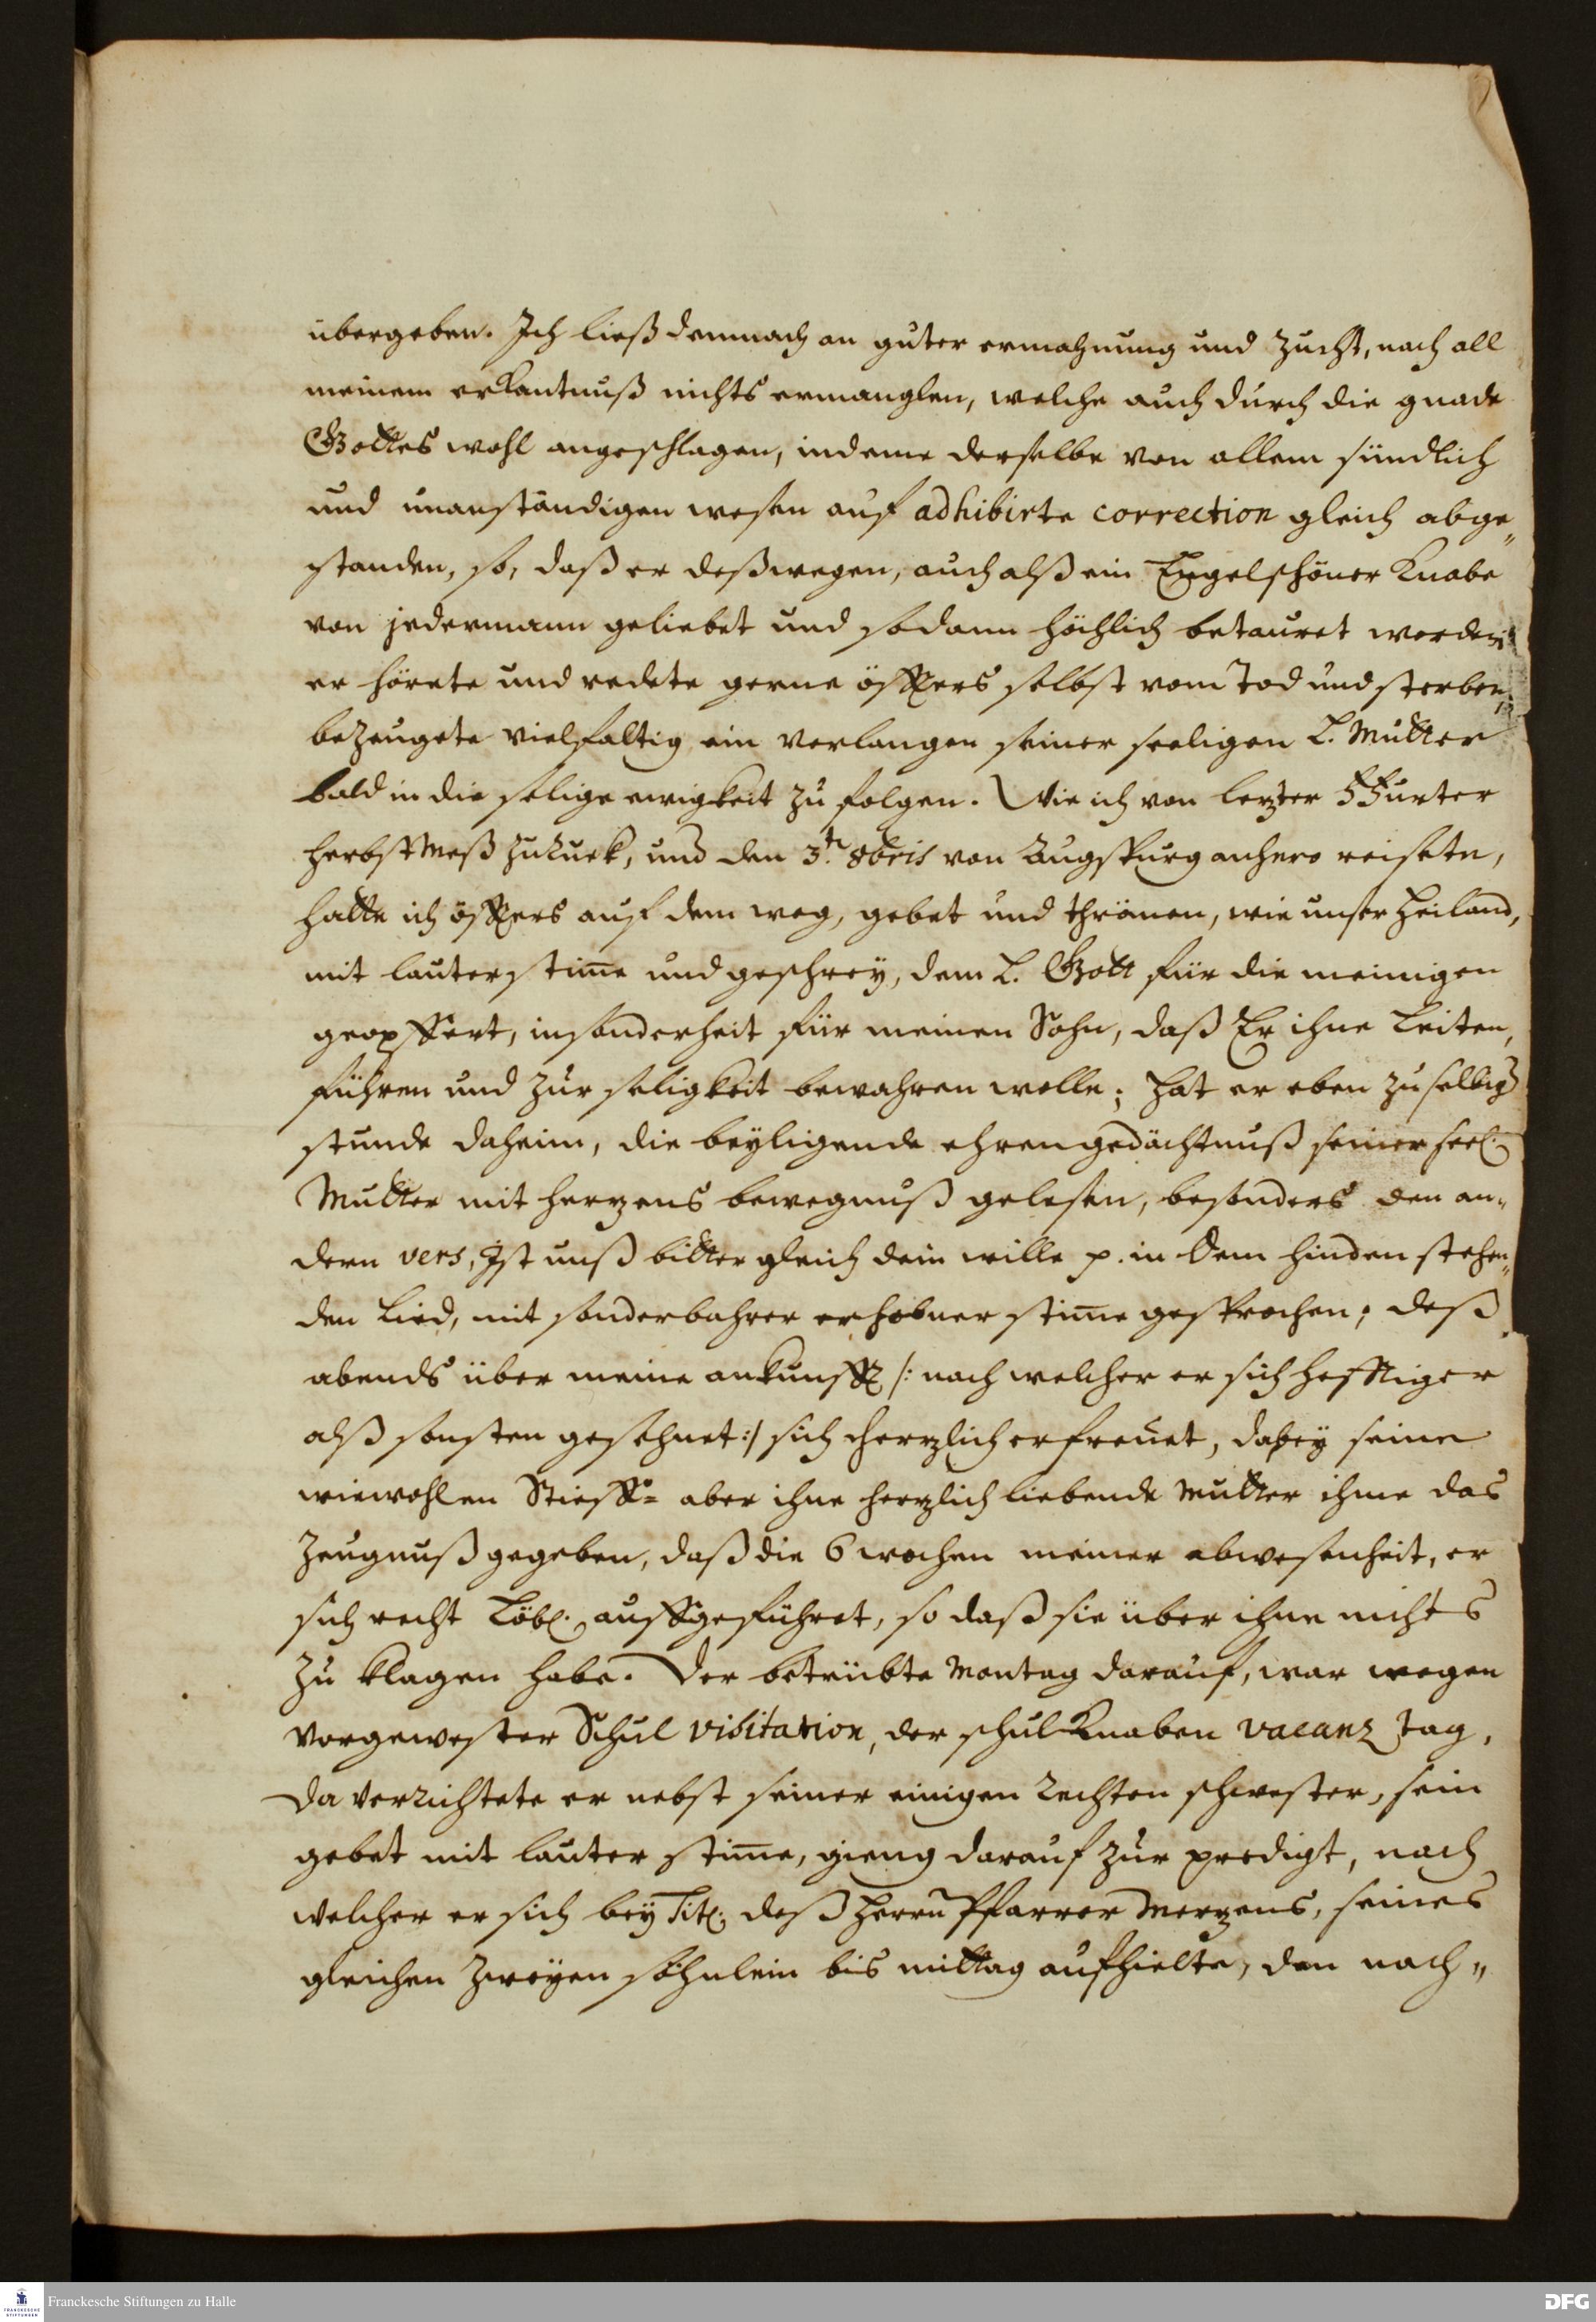 übergeben. Ich ließ demnach an guter ermahnung und zucht, nach all
meinem erkantnuß nichts ermanglen, welche auch durch die gnade
Gottes wohl angeschlagen, indeme derselbe von allem sündlich
und unanständigen wesen auf adhibirte correction gleich abge„
standen, so, daß er deßwegen, auch alß ein Engelschöner Knabe
von jedermann geliebet und sodann höchlich betauret worden;
er hörete und redete gerne öffters selbst vom Tod und sterben,
bezeugete vielfaltig ein verlangen seiner seeligen L. Mutter
bald in die selige ewigkeit zu folgen. Wie ich von lezter Ffurter
herbst Meß zuruck, und den 3.t 8bris von Augspurg anhero reisete,
hatte ich öffters auf dem weg, gebet und thränen, wie unser Heiland,
mit lauter stim̄e und geschreÿ, dem L. Gott für die meinigen
geopffert, insonderheit für meinen Sohn, daß Er ihne leiten,
führen und zur seligkeit bewahren wolle; hat er eben zu selbig
stunde daheim, die beÿligende ehrengedächtnuß seiner seel.
Mutter mit herzens bewegnuß gelesen, besonders den an„
dern vers, Ist unß bitter gleich dein wille p. in dem hinden stehen„
den Lied, mit sonderbahrer erhobner stim̄e gesprochen; deß
abends über meine ankunfft /: nach welcher er sich hefftiger
alß sonsten gesehnet :/ sich herzlich erfreuet, dabeÿ seine
wiewohlen Stieff- aber ihne herzlich liebende Mutter ihme das
Zeugnuß gegeben, daß die 6 wochen meiner abwesenheit, er
sich recht Löbl. auffgeführet, so daß sie über ihne nichts
zu klagen habe. Der betrübte Montag darauf, war wegen
vorgewester Schul visitation, der schul Knaben vacanz tag,
da verrichtete er nebst seiner einigen rechten schwester, sein
gebet mit lauter stim̄e, gieng darauf zur predigt, nach
welcher er sich beÿ Tit. deß Herrn Pfarrer Merzens, seines
gleichen zweÿen söhnlein bis mittag aufhielte, den nach„
Franckesche Stiftungen zu Halle
DFG